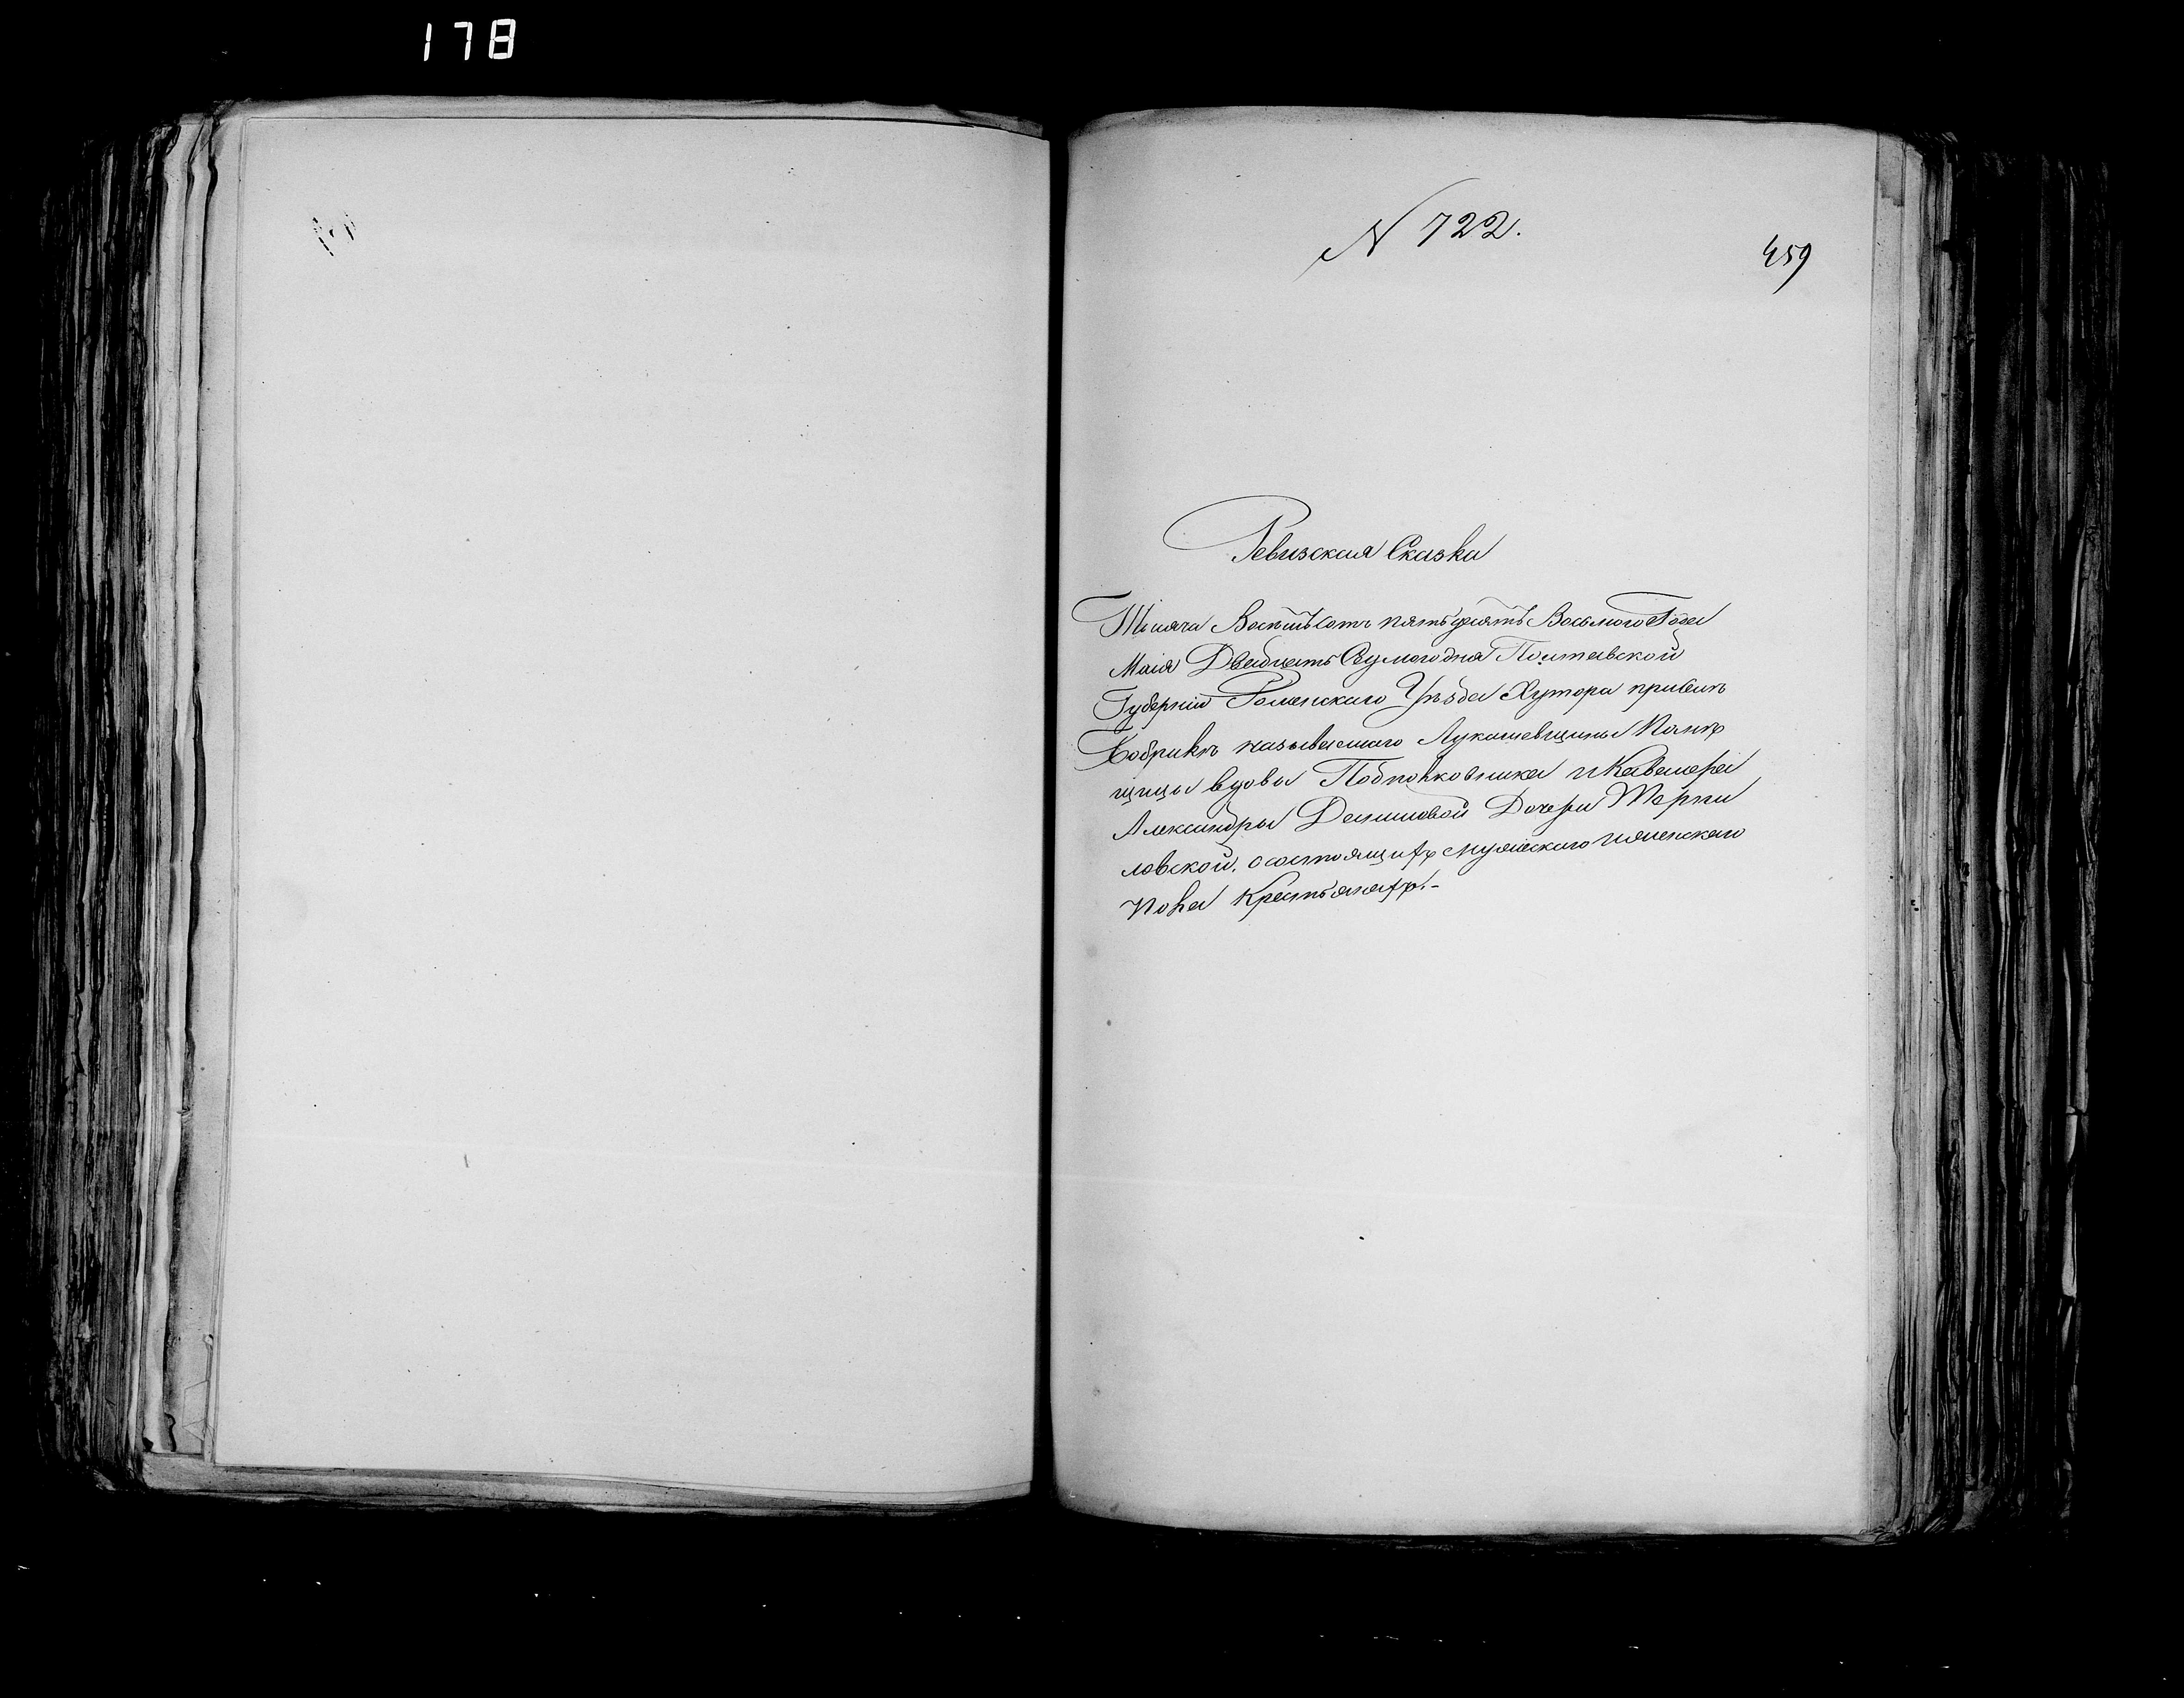 178
N 722.
459
Ревизская Сказка
Тысяча Восемьсотъ пятьдесятъ Восьмого Года
Маія Двадцать Седмого дня Полтавской
Губерніи Роменскаго Уѣзда Хутора при
Бобрикѣ называемаго Лукашевщины Помѣ
щицы вдовы Подполковника и Кавалера
Александры Денисовой Дочери Терпи
ловской, о состоящихъ мужескаго и женскаго
пола Крестьянахъ.-